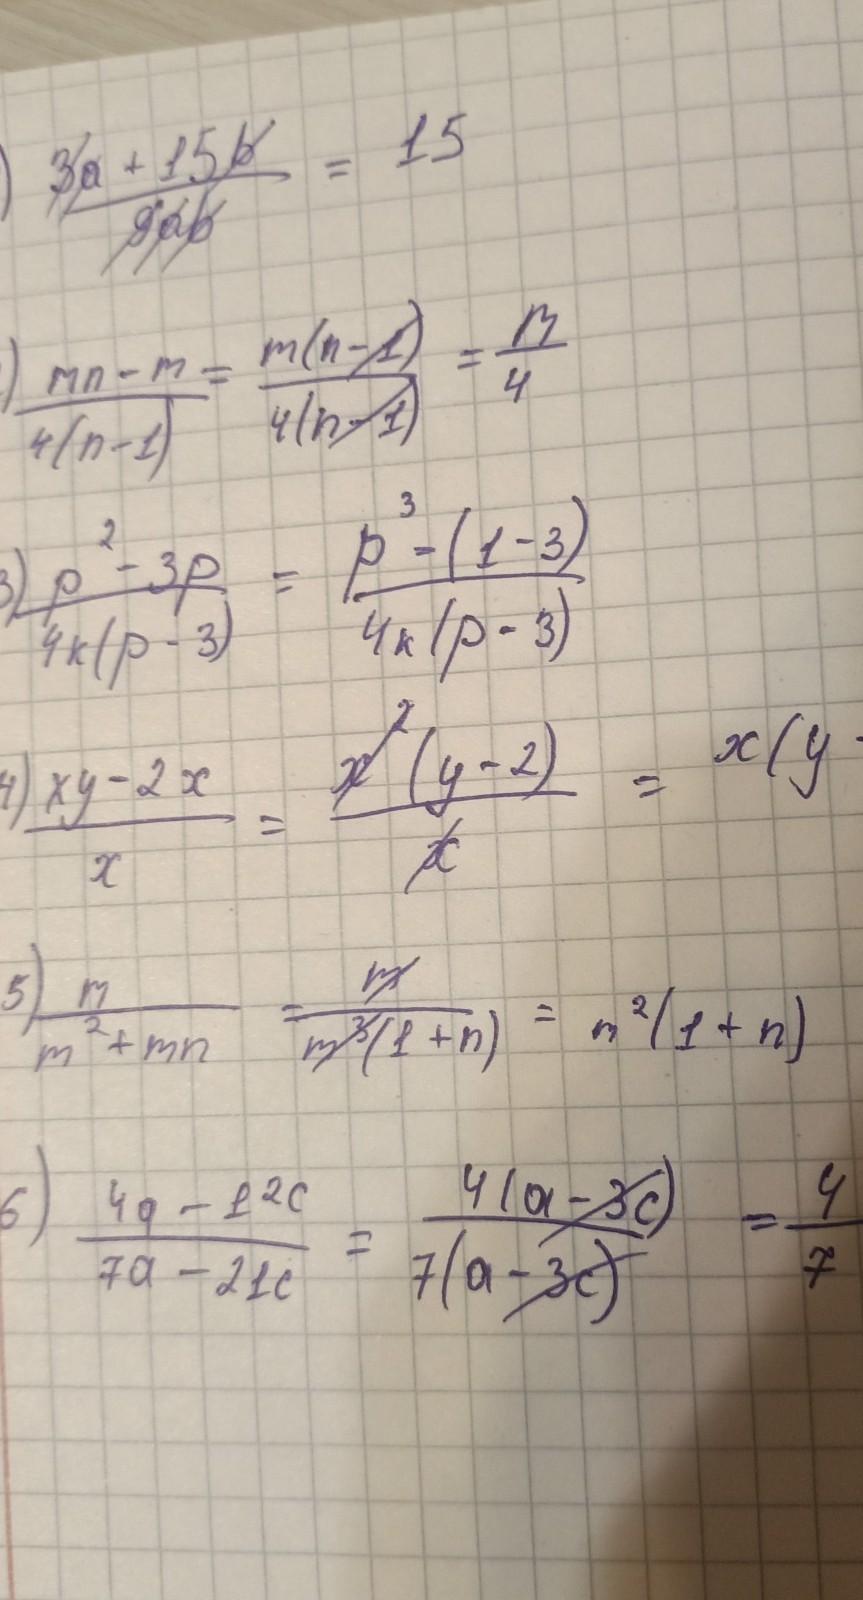 ) 3a + 15b / 9ab = 15
) mn - m / 4(n-1) = m(n-1) / 4(n-1) = m / 4
3) p² - 3p / 4к(p-3) = p³ - (1-3) / 4к(p-3)
4) xy - 2x / x = x²(y-2) / x = x(y -
5) m / m² + mn = m / m³(1+n) = m²(1+n)
6) 4a - 12c / 7a - 21c = 4(a-3c) / 7(a-3c) = 4 / 7